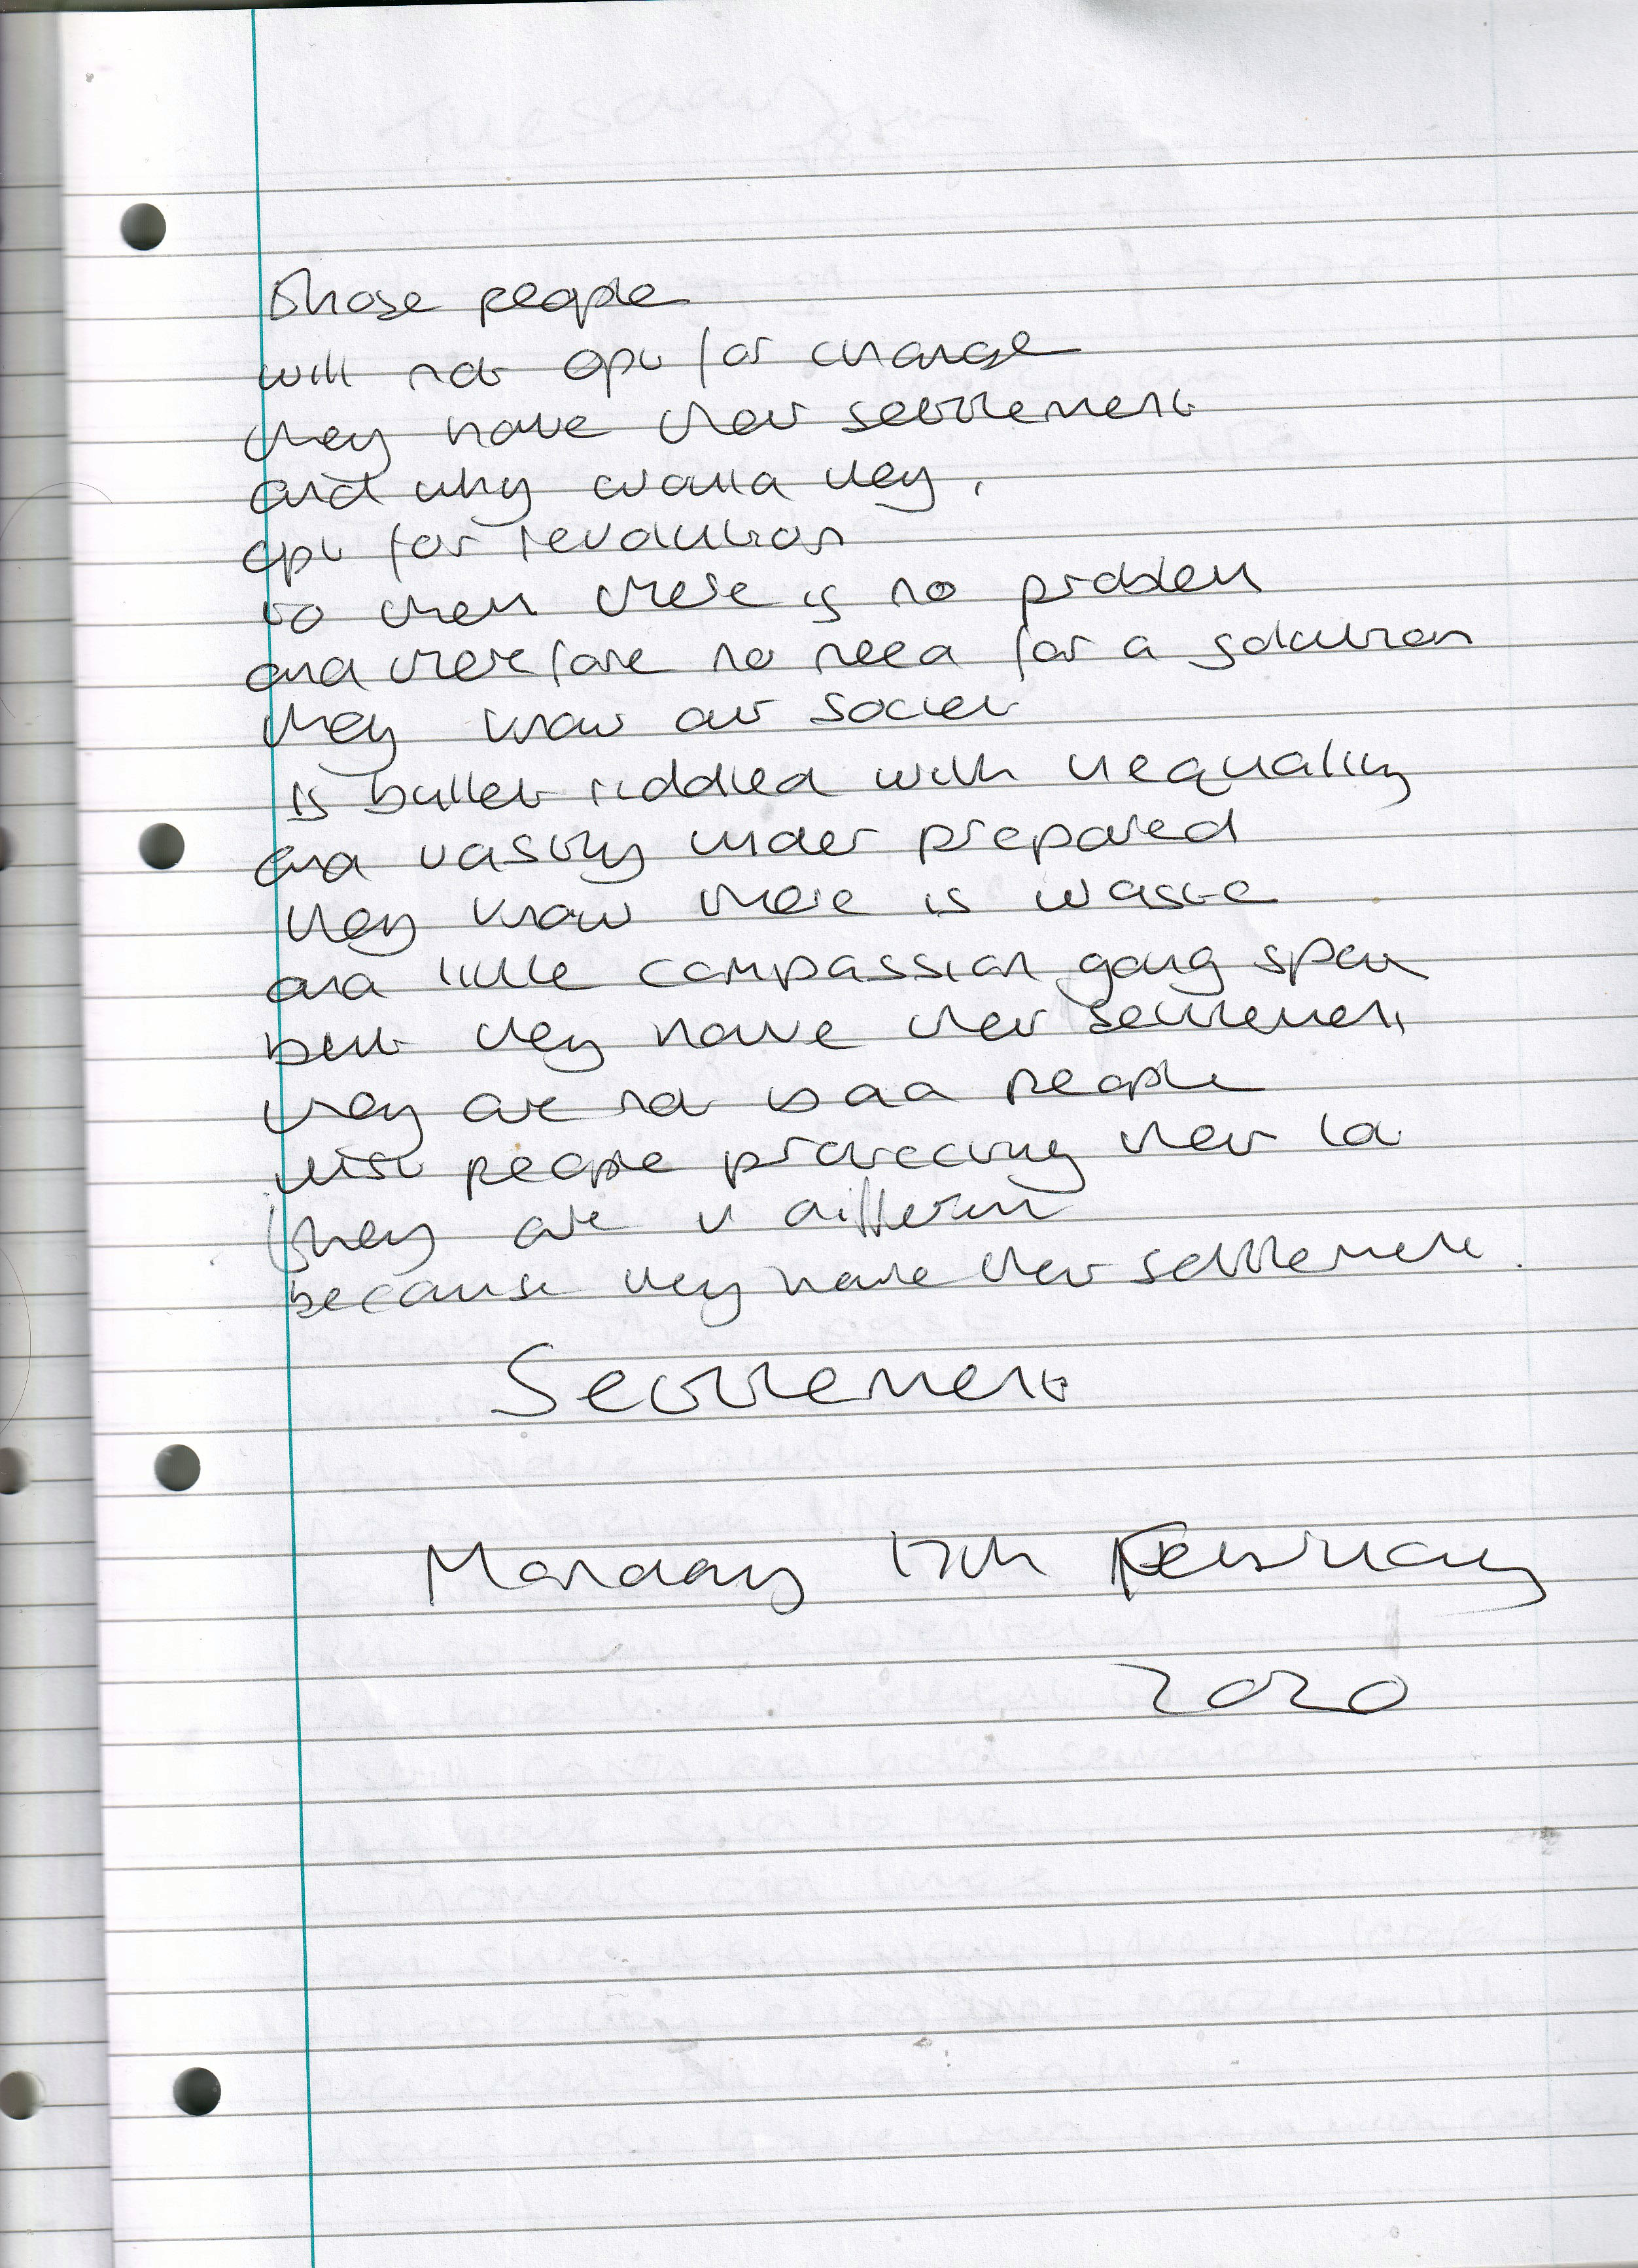 Those people
will not opt for change
they have their settlement
and why would they,
opt for revolution
to them there is no problem
and therefore no need for a solution
they know our societ
is bullet riddled with inequality
and vastly under prepared
they know there is waste
and little compassion going spare
but they have their settlement
they are not bad people
just people protecting their lot
they are indifferent
because they have their settlement.
Settlement
Monday 17th February
2020